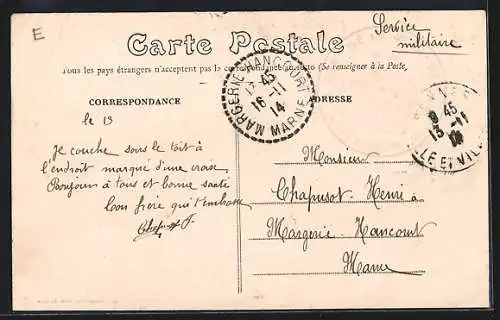 E
Carte Postale
Service
militaire
Tous les pays étrangers n'acceptent pas la correspondance au recto (Se renseigner à la Poste)
CORRESPONDANCE
ADRESSE
MARGERIE-HANCOURT
17 45
16-11
14
MARNE
RENNES
9 45
13-11
14
ILLE ET VIL
le 13
Je couche sous le toit à
l'endroit marqué d'une croix
Bonjour à tous et bonne santé
Ton frère qui t'embrasse
Chapusot J.
Monsieur
Chapusot Henri à
Margerie-Hancourt
Marne